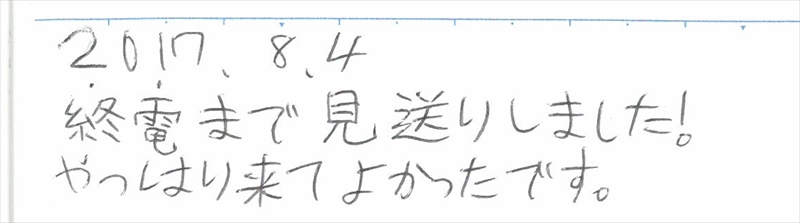 2017、8、4
終電まで見送りしました!
やっぱり来てよかったです。